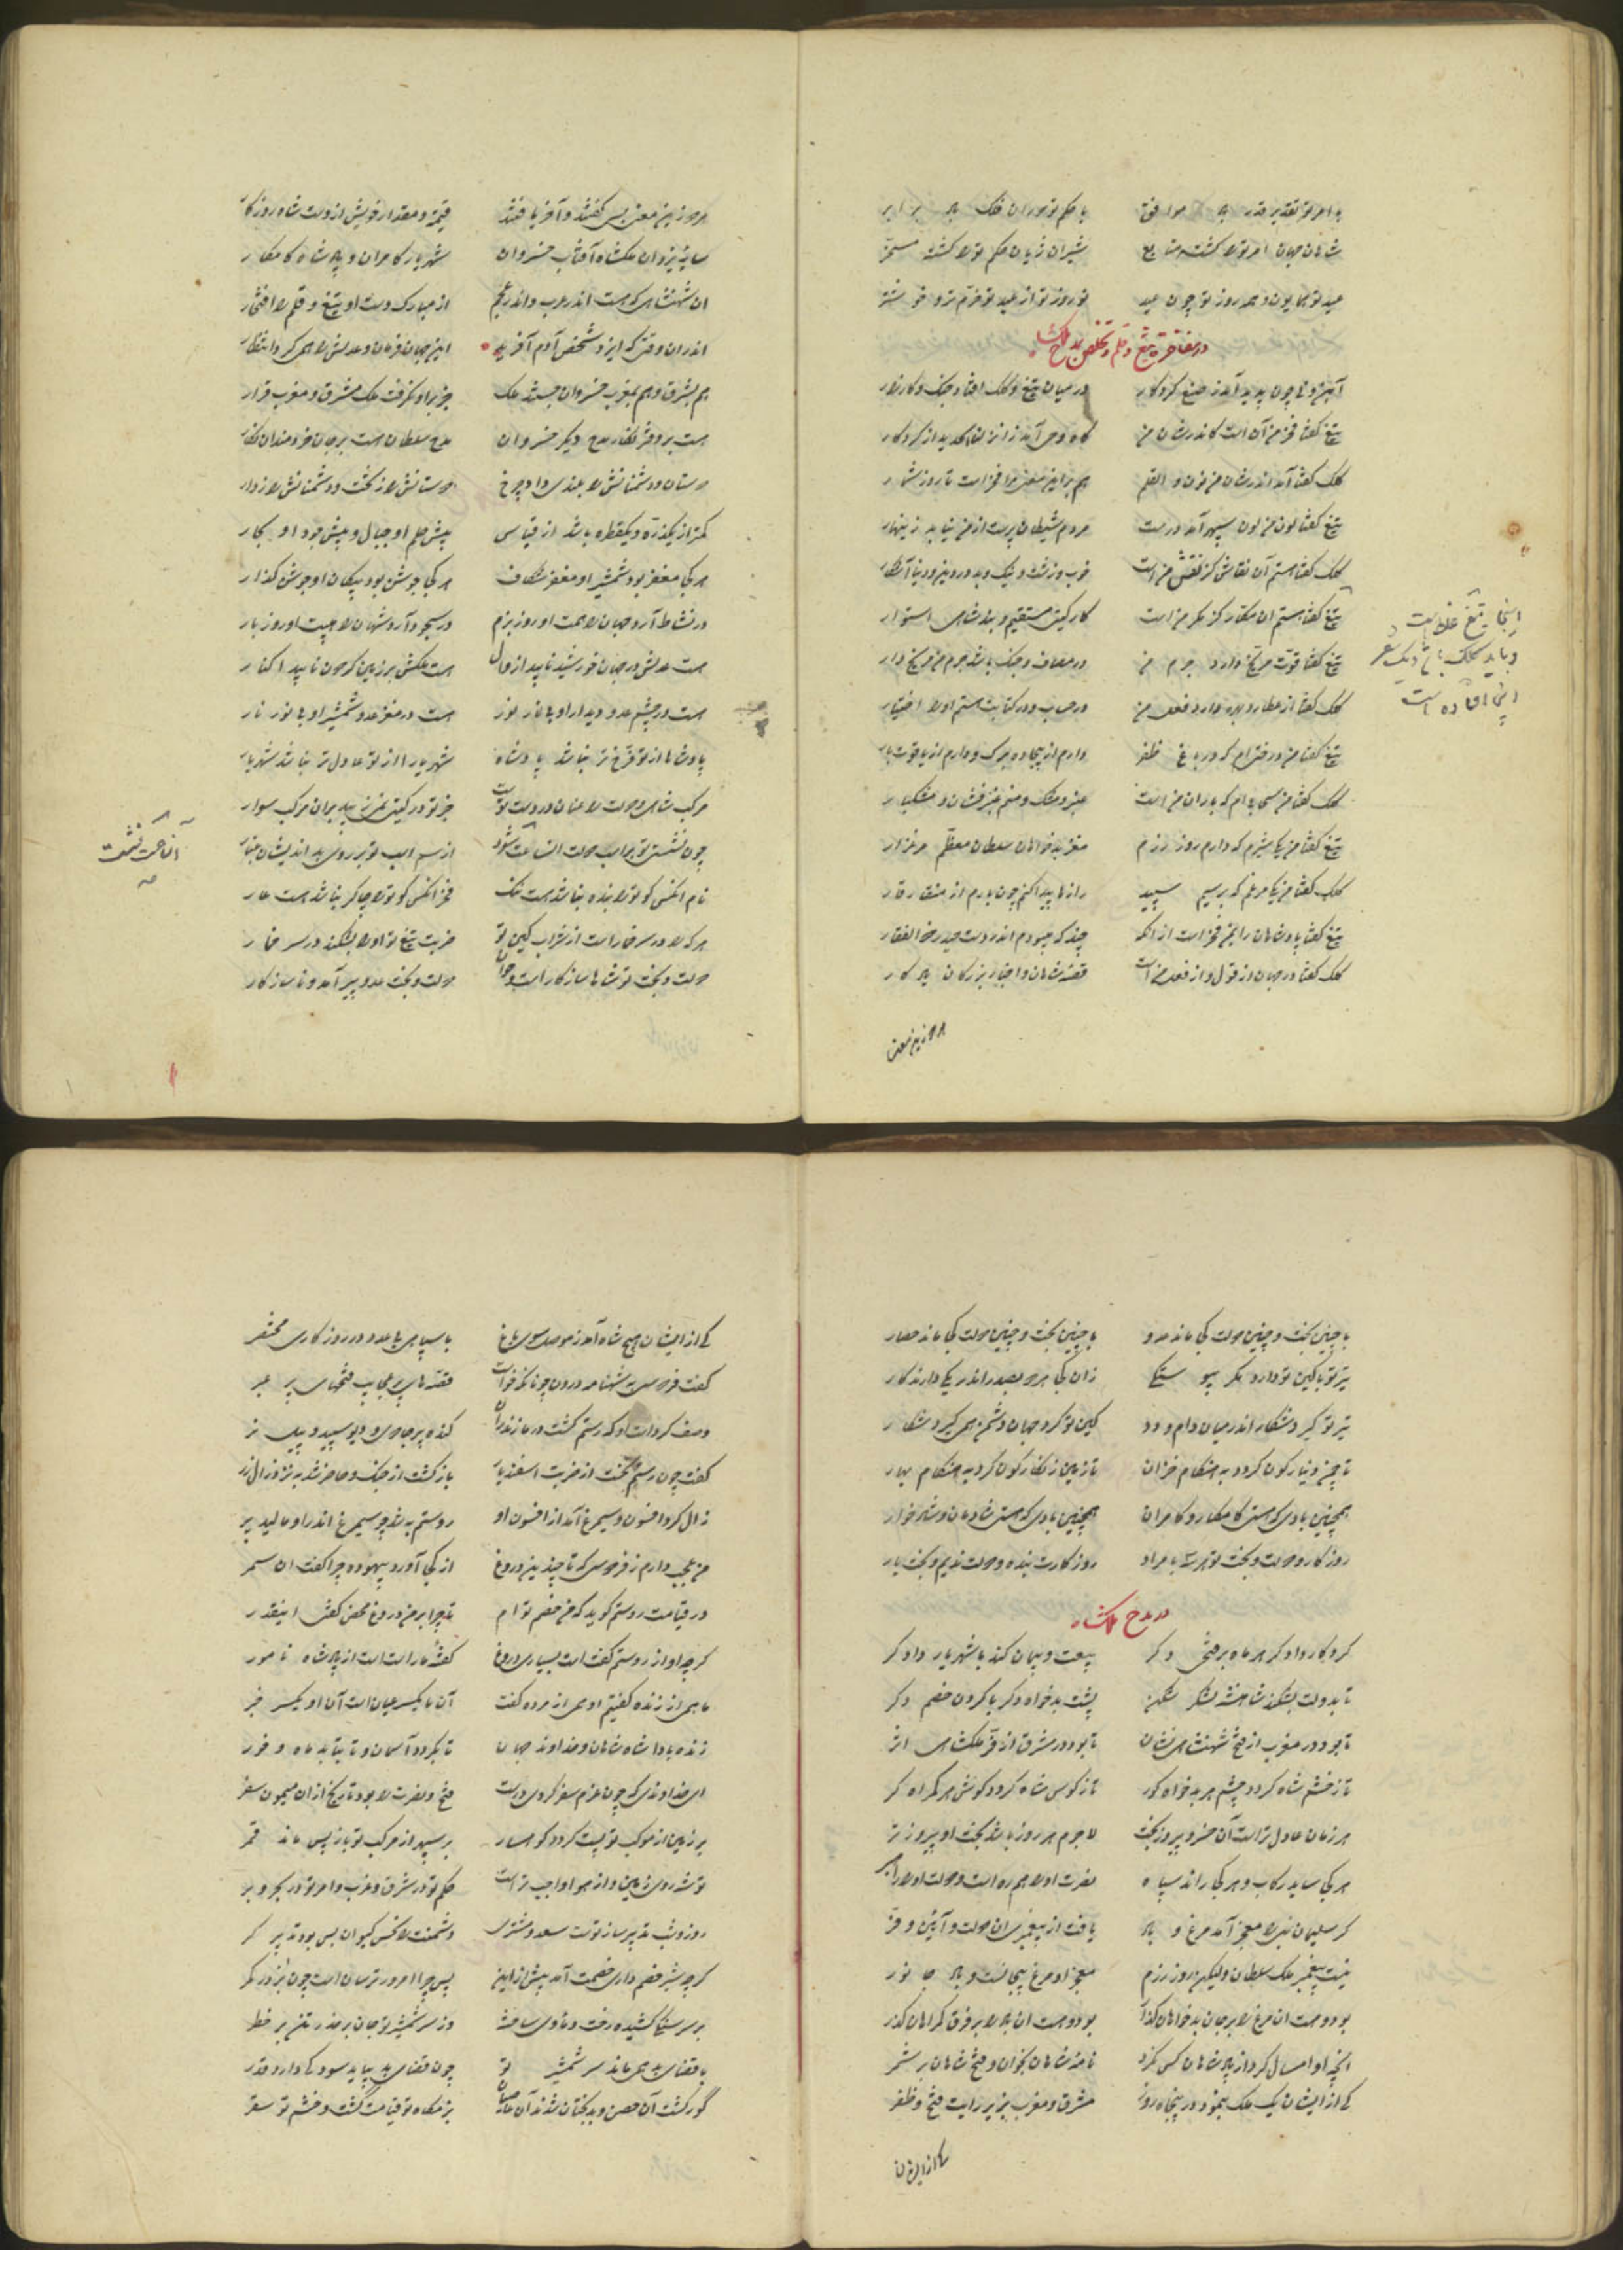 با حکم تو دوران فلک برابر
شاهان جهان امر ترا گشته متابع شیران ژیان حکم ترا گشته مسخر
عید تو همایون و همه روز تو چون عید نوروز تو از عید تو خرم تر و خوشتر
در مفاخره تیغ و قلم و تخلص بمدح ملکشاه
در میان تیغ و کلک افتاد جنگ و کارزار
تیغ گفتا فخر من آن است کاندر شان من
کلک گفتا آمد اندر شان من نون و القلم هم برین معنی مرا فخر است تا روز شمار
تیغ گفتا لون من لون سپهر آمد درست مردم شیطان پرست از من نیابد زینهار
کلک گفتا هستم آن نقاش کز نقش من است خوب و زشت و نیک و بد در دین و دنیا آشکار
تیغ گفتا هستم آن مکار کز مکر من است کار گیتی مستقیم و بند شاهی استوار
تیغ گفتا قوت مریخ دارد جرم من در مصاف و جنگ باشد جرم من مریخ وار
کلک گفتا از عطارد بهره دارد فعل من در حساب و در کتابت هستم او را اختیار
تیغ گفتا من درختی ام که در باغ ظفر دارم از بیجاده برگ و دارم از یاقوت بار
کلک گفتا من سحابی ام که باران من است عنبر و مشک و منم عنبرفشان و مشکبار
تیغ گفتا من یکی شیرم که دارم روز رزم مغز بدخواهان سلطان معظم مرغزار
کلک گفتا من یکی مرغم که بر سیم سپید رازها پیدا کنم چون بارم از منقار قار
تیغ گفتا پادشاهان را بمن فخر است از آنکه چند گه بودم اندر دست حیدر ذوالفقار
کلک گفتا در جهان از قول و از فعل من است قصه شاهان و اخبار بزرگان یادگار
هر دو زین معنی
اینجا تیغ غلط است
و باید کلک باشد و یک شعر
اینجا افتاده است
هر دو زین معنی بسی گفتند و آخر یافتند قیمت و مقدار خویش از دست شاه روزگار
سایه یزدان ملکشاه آفتاب خسروان شهریار کامران و پادشاه کامکار
آن شهنشاهی که هست اندر عرب و اندر عجم از مبارک دست او تیغ و قلم را افتخار
اندر آن وقتی که ایزد شخص آدم آفرید این جهان فرمان و عدلش را همی کرد انتظار
هم بشرق و هم بمغرب خسروان جستند ملک جز برو نگرفت ملک مشرق و مغرب قرار
هست بر دفتر نگار مدح دیگر خسروان مدح سلطان هست بر جان خردمندان نگار
دوستان و دشمنانش را بلندی داد چرخ دوستانش را ز تخت و دشمنانش را ز دار
کمتر از یک ذره و یک قطره باشد از قیاس پیش حلم او جبال و پیش جود او بحار
هر کجا مغفر بود شمشیر او مغفر شکاف هر کجا جوشن بود پیکان او جوشن گذار
در نشاط آرد جهان را همت او روز بزم در سجود آرد شهان را هیبت او روز بار
هست عدلش در جهان خورشید ناپیدا زوال هست ملکش بر زمین گردون ناپیدا کنار
هست در چشم عدو دیدار او بی نار نور هست در مغز عدو شمشیر او بی نور نار
پادشاها از تو فرخ تر نباشد پادشاه شهریارا از تو عادل تر نباشد شهریار
مرکب شاهی و دولت را عنان در دست توست جز تو در گیتی نزیبد بر آن مرکب سوار
چون نشستی تو بر اسب دولت از سم اسب تو بر روی بداندیشان غبار
نام آنکس کو ترا بنده نباشد هست ننگ فخر آنکس کو ترا چاکر نباشد هست عار
هر که را در سر خمار است از شراب کین تو ضربت تیغ تو او را بشکند در سر خمار
دولت و بخت تو شاها سازگار است و جوان دولت و بخت عدو پیر آمد و ناسازگار
با چنین بخت و چنین دولت کجا ماند عدو با چنین بخت و چنین دولت کجا ماند حصار
تیر تو گیرد شکار اندر میان دام و دد کین تو گرد جهان دشمن همی گیرد شکار
تا چمن دینار گون گردد به هنگام خزان تا زمین زنگارگون گردد به هنگام بهار
همچنین بادی که هستی کامکار و کامران همچنین بادی که هستی شادمان و شادخوار
روزگار و دولت و بخت تو هر سه با مراد روزگارت بنده و دولت ندیم و بخت یار
در مدح ملکشاه
کردگار دادگر هر ماه بر فتحی دگر بیعت و پیمان کند با شهریار دادگر
تا بدولت بشکند شاهنشه لشکر شکن پشت بدخواه دگر یا گردن خصم دگر
تا بود در مغرب از فتح شهنشاهی نشان تا بود در مشرق از فر ملکشاهی اثر
تا ز خشم شاه گردد چشم هر بدخواه کور تا ز کوس شاه گردد گوش هر گمراه کر
هر زمان عادل تر است آن خسرو پیروز بخت لاجرم هر روز باشد بخت او پیروز تر
هر کجا ساید رکاب و هر کجا راند سپاه نصرت او را همره است و دولت او را راهبر
گر سلیمان نبی را معجز آمد مرغ و باد یافت از پیغمبری آن دولت و آیین و فر
نیست پیغمبر ملک سلطان ولیکن روز رزم معجز او مرغ بیجانست و باد جانور
آنچه او امسال کرد از پادشاهان کس نکرد نامه شاهان بخوان و فتح شاهان بر شمر
کی از ایشان یک ملک بنمود در پنجاه روز مشرق و مغرب بزیر رایت فتح و ظفر
کی از ایشان
کی از ایشان هیچ شاه آمد ز موصل سوی بلخ با سپاهی بی عدد در روزگاری مختصر
گفت فردوسی به شهنامه درون چونانکه خواست قصه های پر عجایب فتحهای پر عبر
وصف کردست او که رستم کشت در مازندران گنده پیر جادو و دیو سپید و شیر نر
گفت چون رستم بجست از ضربت اسفندیار بازگشت از جنگ و حاضر شد به نزد زال زر
زال کرد افسون و سیمرغ آمد از افسون او
من عجب دارم ز فردوسی که تا چندین دروغ از کجا آورد و بیهوده چرا گفت آن سمر
در قیامت روستم گوید که من خصم توام تا چرا بر من دروغ محض گفتی اینقدر
گرچه او از روستم گفتست بسیاری دروغ گفته ما راست است از پادشاه نامور
ما همی از زنده گفتیم او همی از مرده گفت آن ما یکسر عیان است آن او یکسر خبر
زنده بادا شاه شاهان و خداوند جهان تا بگردد آسمان و تا بتابد ماه و خور
ای خداوندی که چون عزم سفر کردی درست فتح و نصرت را بود تاریخ از آن میمون سفر
بر زمین از موکب تو پست گردد کوهسار بر سپهر از مرکب تو باز پس ماند قمر
روز و شب تدبیر ساز توست سعد مشتری دشمنت را نحس کیوان بس بود تدبیر گر
با قضای بد همی ماند سر شمشیر تو چون قضای بد بیاید سود کی دارد حذر